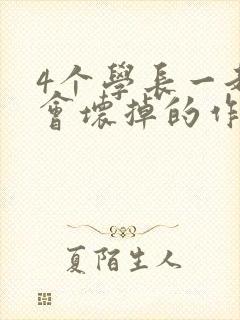 4个學長一起
會壞掉的作
夏陌生人